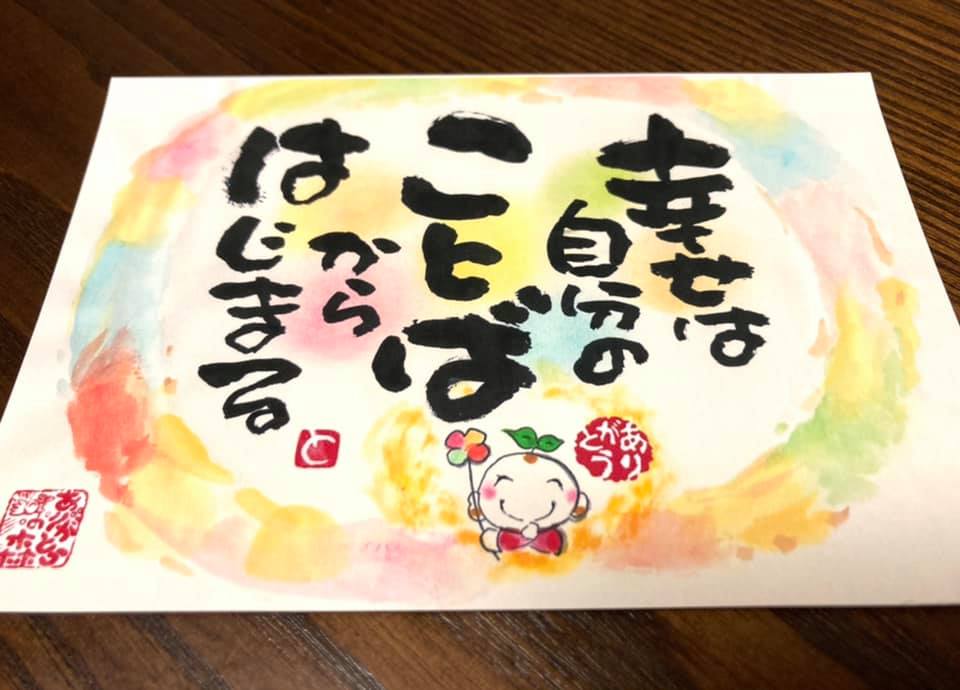 幸せは
自分の
ことば
から
はじまる
ありがとう
と